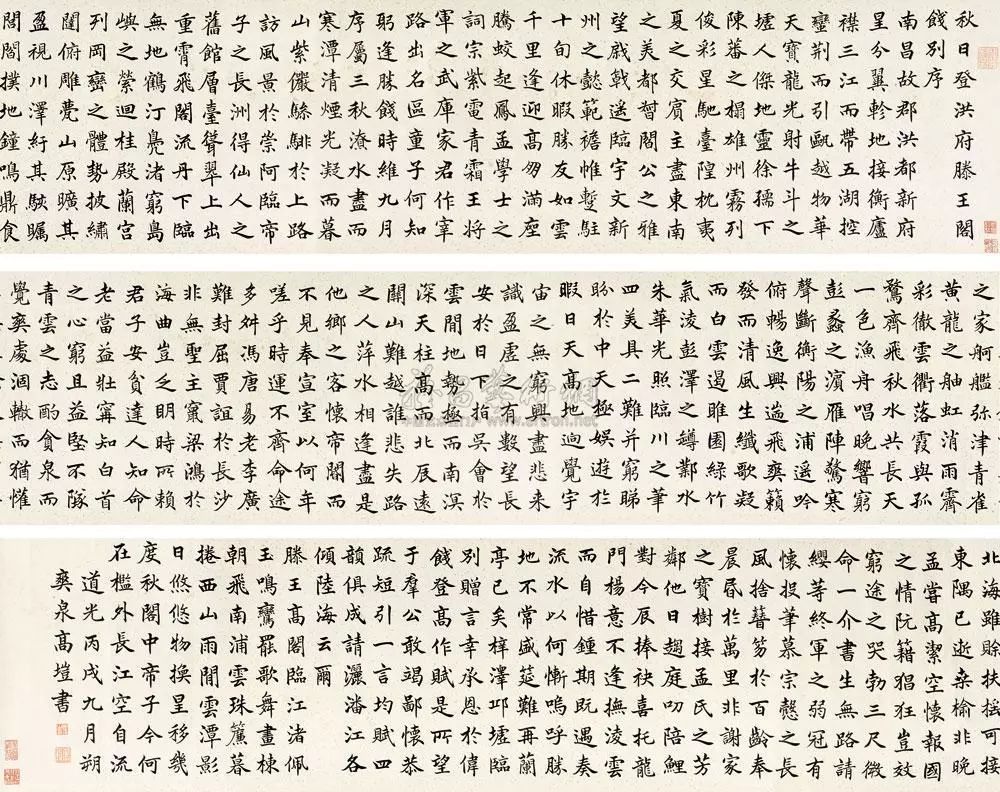 秋日登洪府滕王閣
餞別序
南昌故郡洪都新府
星分翼軫地接衡廬
襟三江而帶五湖控
蠻荆而引甌越物華
天寶龍光射牛斗之
墟人傑地靈徐孺下
陳蕃之榻雄州霧列
俊彩星馳臺隍枕夷
夏之交賓主盡東南
之美都督閻公之雅
望棨戟遥臨宇文新
州之懿範襜帷暫駐
十旬休暇勝友如雲
千里逢迎高朋滿座
騰蛟起鳳孟學士之
詞宗紫電青霜王將
軍之武庫家君作宰
路出名區童子何知
躬逢勝餞時維九月
序屬三秋潦水盡而
寒潭清煙光凝而暮
山紫儼驂騑於上路
訪風景於崇阿臨帝
子之長洲得仙人之
舊館層臺聳翠上出
重霄飛閣流丹下臨
無地鶴汀鳧渚窮島
嶼之縈迴桂殿蘭宮
列岡巒之體勢披繡
闥俯雕甍山原曠其
盈視川澤紆其駭矚
閭閻撲地鐘鳴鼎食
之家舸艦弥津青雀
黃龍之舳虹消雨霽
彩徹雲衢落霞與孤
鶩齊飛秋水共長天
一色漁舟唱晚響窮
彭蠡之濱雁陣驚寒
聲斷衡陽之浦遥吟
俯暢逸興遄飛爽籟
發而清風生纖歌凝
而白雲遏睢園綠竹
氣凌彭澤之罇鄴水
朱華光照臨川之筆
四美具二難并窮睇
眄於中天極娛遊於
暇日天高地迥覺宇
宙之無窮興盡悲來
識盈虛之有數望長
安於日下指吳會於
雲間地勢極而南溟
深天柱高而北辰遠
關山難越誰悲失路
之人萍水相逢盡是
他鄉之客懷帝閽而
不見奉宣室以何年
嗟乎時運不齊命途
多舛馮唐易老李廣
難封屈賈誼於長沙
非無聖主竄梁鴻於
海曲豈乏明時所賴
君子安貧達人知命
老當益壯寧知白首
之心窮且益堅不墜
青雲之志酌貪泉而
覺爽處涸轍而猶懽
北海雖賒扶摇可接
東隅已逝桑榆非晚
孟嘗高潔空懷報國
之情阮籍猖狂豈效
窮途之哭勃三尺微
命一介書生無路請
纓等終軍之弱冠有
懷投筆慕宗愨之長
風捨簪笏於百齡奉
晨昏於萬里非謝家
之寶樹接孟氏之芳
鄰他日趨庭叨陪鯉
對今辰捧袂喜托龍
門楊意不逢撫凌雲
而自惜鍾期既遇奏
流水以何慚嗚呼勝
地不常盛筵難再蘭
亭已矣梓澤邱墟臨
別贈言幸承恩於偉
餞登高作賦是所望
于羣公敢竭鄙懷恭
疏短引一言均賦四
韻俱成請灑潘江各
傾陸海云爾
滕王高閣臨江渚佩
玉鳴鸞罷歌舞畫棟
朝飛南浦雲珠簾暮
捲西山雨閒雲潭影
日悠悠物換星移幾
度秋閣中帝子今何
在檻外長江空自流
道光丙戌九月朔
爽泉高塏書